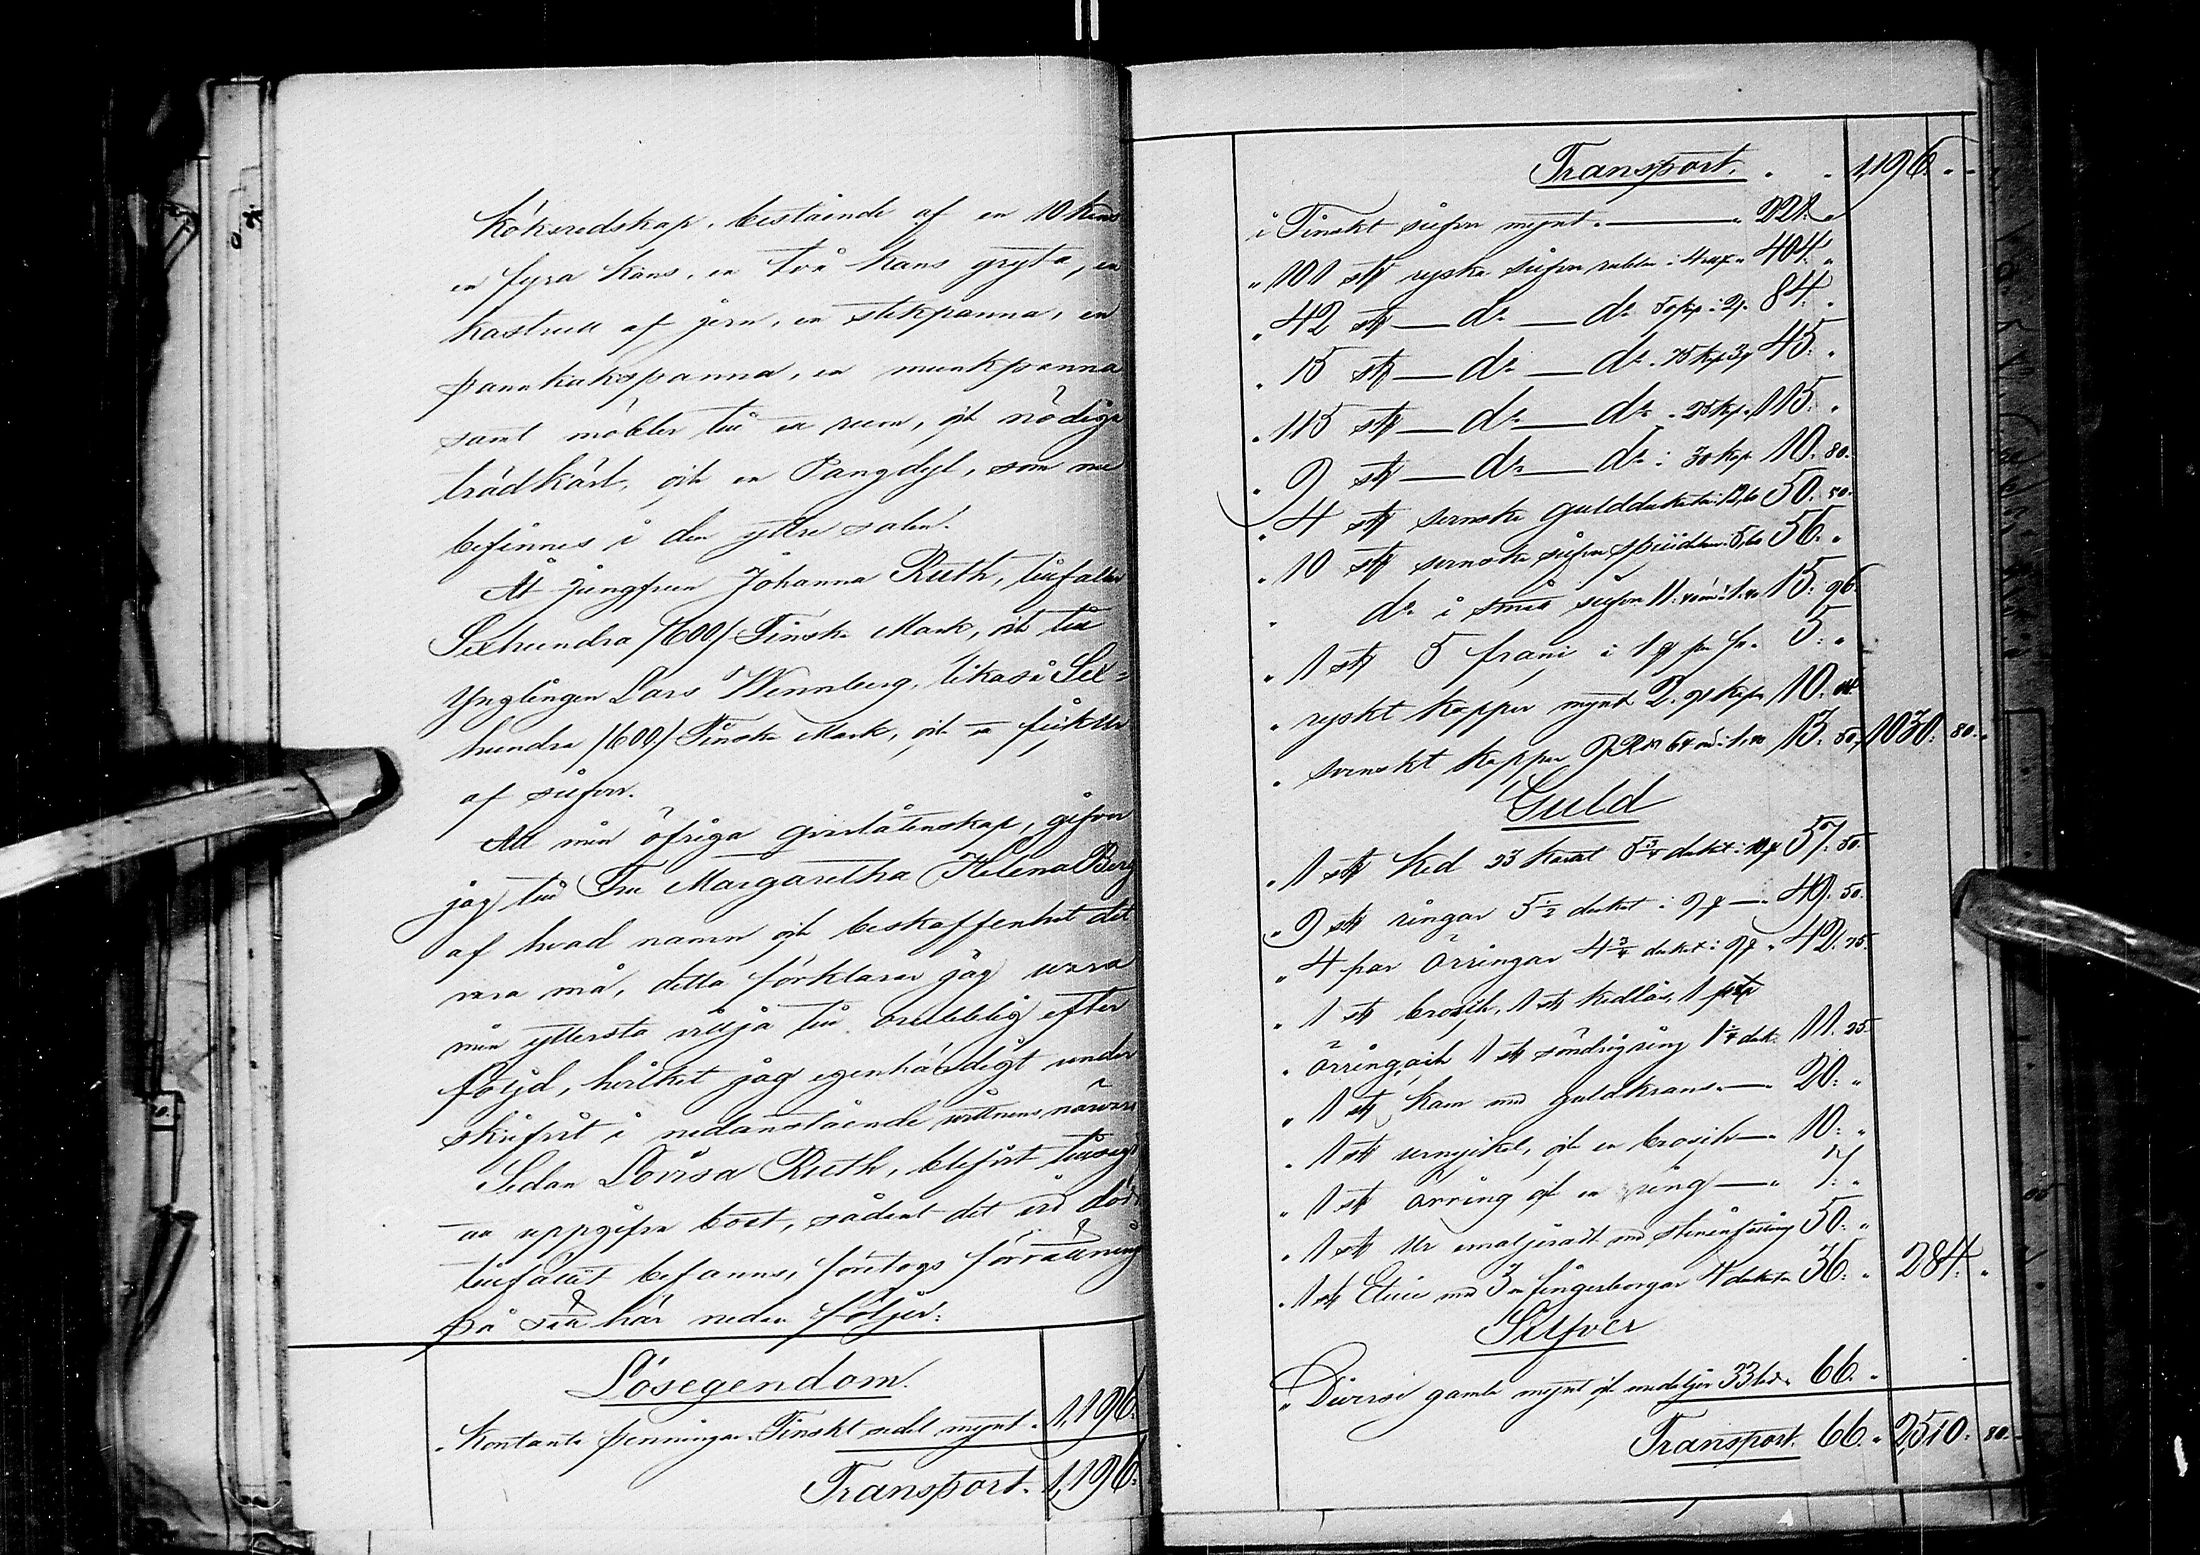 köksredskap, bestående af en 10 kans
en fyra kans, en två kans gryta, en
kastrull af jern, en stekpanna, en
pannkakspanna, en munkpanna
samt möbler till ett rum, och nödiga
trädkärl, och en Pangdyl, som nu
befinnes i den yttre salen.
At jungfrun Johanna Ruth, tillfaller
Sexhundra /600/ Finska Mark, och till
Ynglingen Lars Wennberg, likaså Sex=
hundra /600/ Finska Mark, och en
af silfver.
All min öfriga qvarlåtenskap, gifver
jag till Fru Margaretha Helena Berg
af hvad namn och beskaffenhet det
vara må, detta förklarar jag vara
min yttersta vilja till orubblig efter
följd, hvilket jag egenhändigt under
skrifvit i nedanstående vittnens närvaro
Sedan Lovisa Ruth, blifvit tillsagd
att uppgifva boet, sådant det vid döds
tillfället befanns, företogs förrättning
på sätt här nedan följer:
Lösegendom.
" Kontante penningar Finskt sedel mynt " 1,196:
Transport. 1,196:
Transport. " " 1,196. " "
i Finskt silfver mynt. — " 221: "
" 101 st ryska silfver rubler i 4 " 404: "
" 42 st — do — do 50 kop i 2 84: "
" 15 st — do — do " 75 kop 3 45: "
" 115 st — do — do " 25 kop " 115: "
" 9 st — do — do i 30 kop 10: 80.
" 4 st svenska gulddukater i 12,60 50: 50.
" 10 st svenska silfver 5,60 56: "
" do i små silfver 11: 1. 15: 96
" 1 st 5 i 1 5: "
" ryskt koppar mynt 2. 10.
" svenskt koppar 9 64 i 1, 13: 50 1030: 80. "
Guld
" 1 st ked 23 karat 5 3/4 dukat i 10 57: 50.
" 9 st ringar 5 1/2 dukat i 9 — " 49: 50.
" 4 par Örringar 4 3/4 dukat i 9 " 42: 75.
" 1 st brosch, 1 st kedlås, 1
" örring, och 1 st söndrig ring 1 1/4 duk 11: 25.
" 1 st kam med guldkrans — " 20: "
" 1 st urnyckel, och en brosch — " 10: "
" 1 st örring och en ring — " 7: "
" 1 st Ur emaljeradt med 50: "
" 1 st Etui med 3 fingerborgar 4 dukater 36: " 284: "
Silfver
" Diverse gamla mynt och medaljer 33 lod " 66: "
Transport. 66: " 2510: 80.